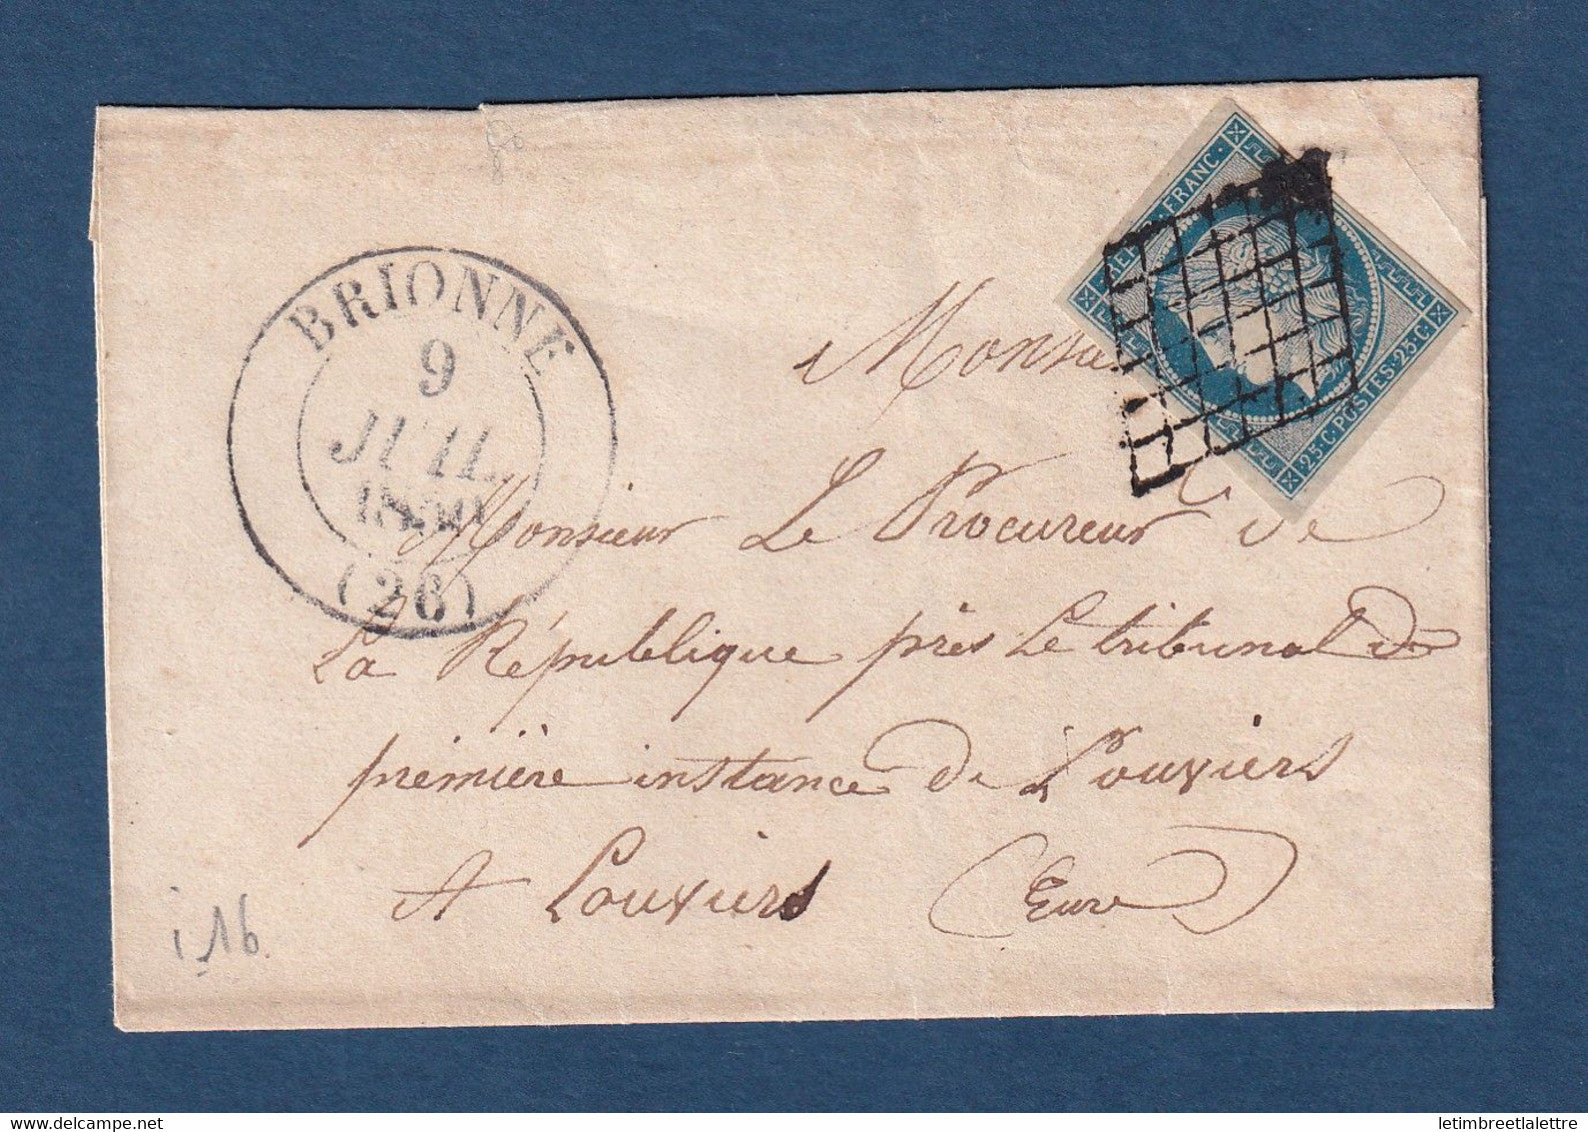 BRIONNE
9
JUIL
1850
(26)
REPUB. FRANC.
25. C. POSTES. 25. C.
Monsieur Le Procureur de
La République près Le tribunal de
première instance de Louviers
A Louviers (Eure)
i 16
letimbreetlalettre